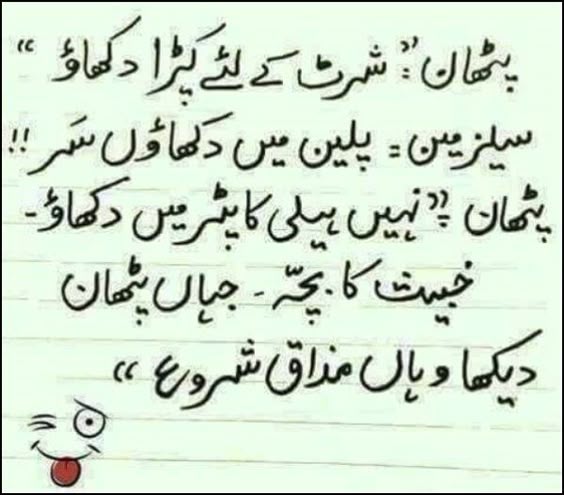 پٹھان: " شرٹ کے لئے کپڑا دکھاؤ "
سیلزمین = پلین میں دکھاؤں سَر !!
پٹھان " نہیں ہیلی کاپٹر میں دکھاؤ ۔
خبیث کا بچّہ ۔ جہاں پٹھان
دیکھا وہاں مذاق شروع "